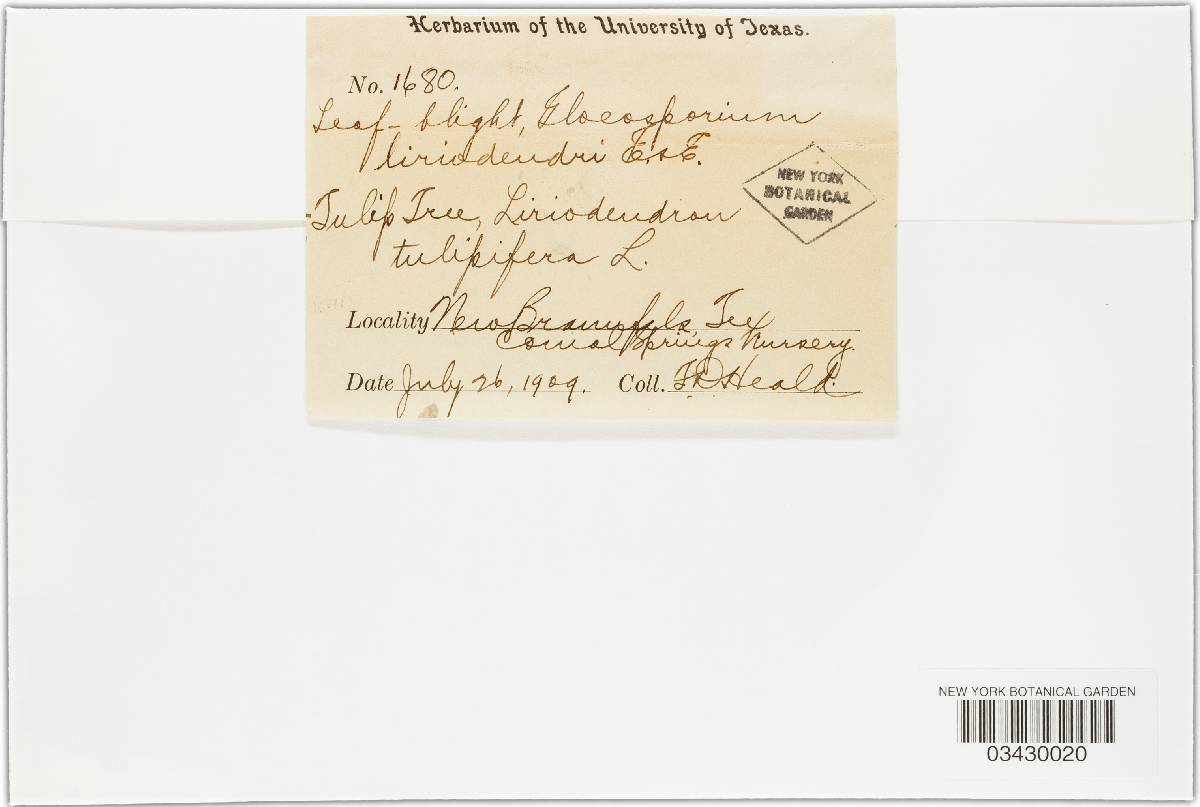 Herbarium of the University of Texas.
No. 1680.
Leaf-blight, Gloeosporium
liriodendri E. & E.
NEW YORK
BOTANICAL
GARDEN
Tulip Tree, Liriodendron
tulipifera L.
Locality New Braunfels, Tex
Comal Springs Nursery.
Date July 26, 1909. Coll. F.D. Heald.
NEW YORK BOTANICAL GARDEN
03430020